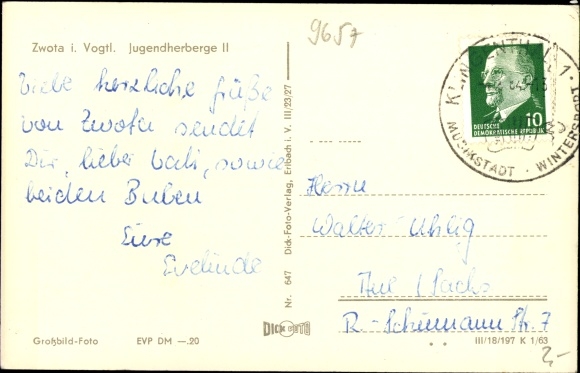 Zwota i. Vogtl. Jugendherberge II
Viele herzliche Grüße
von Zwota sendet
Dir, lieber Vati, sowie
beiden Buben
Eure
Evelinde
Großbild-Foto EVP DM —.20
Nr. 647 Dick-Foto-Verlag, Erlbach i. V. III/23/27
DICK FOTO
9657
KLINGENTHAL 1
MUSIKSTADT · WINTERSPORT
10
DEUTSCHE
DEMOKRATISCHE REPUBLIK
Herrn
Walter Uhlig
Aue / Sachs
R.-Schumann Str. 7
III/18/197 K 1/63
2,-